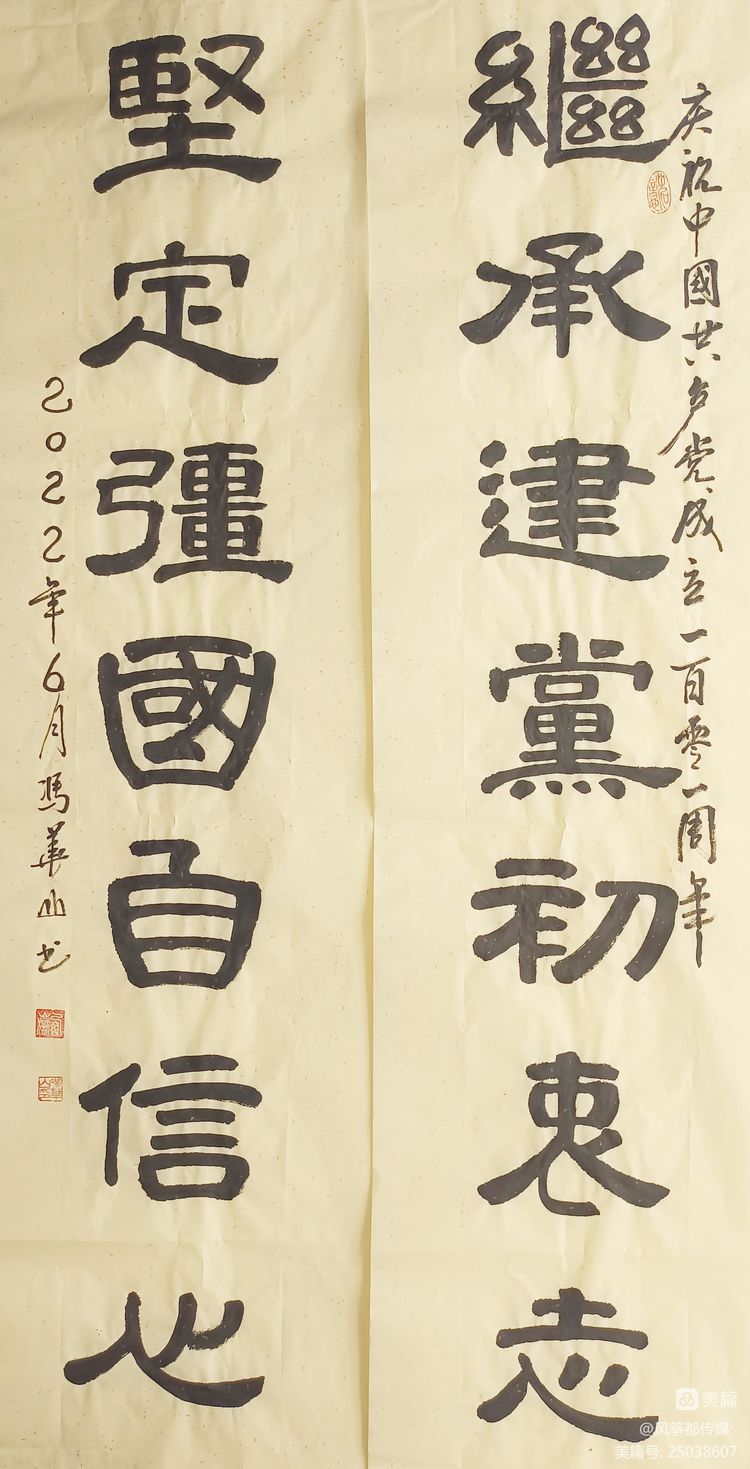 庆祝中國共产党成立一百零一周年
繼承建黨初衷志
堅定彊國自信心
2022年6月馮華山书
美篇
@风筝都传媒
美篇号: 25038607